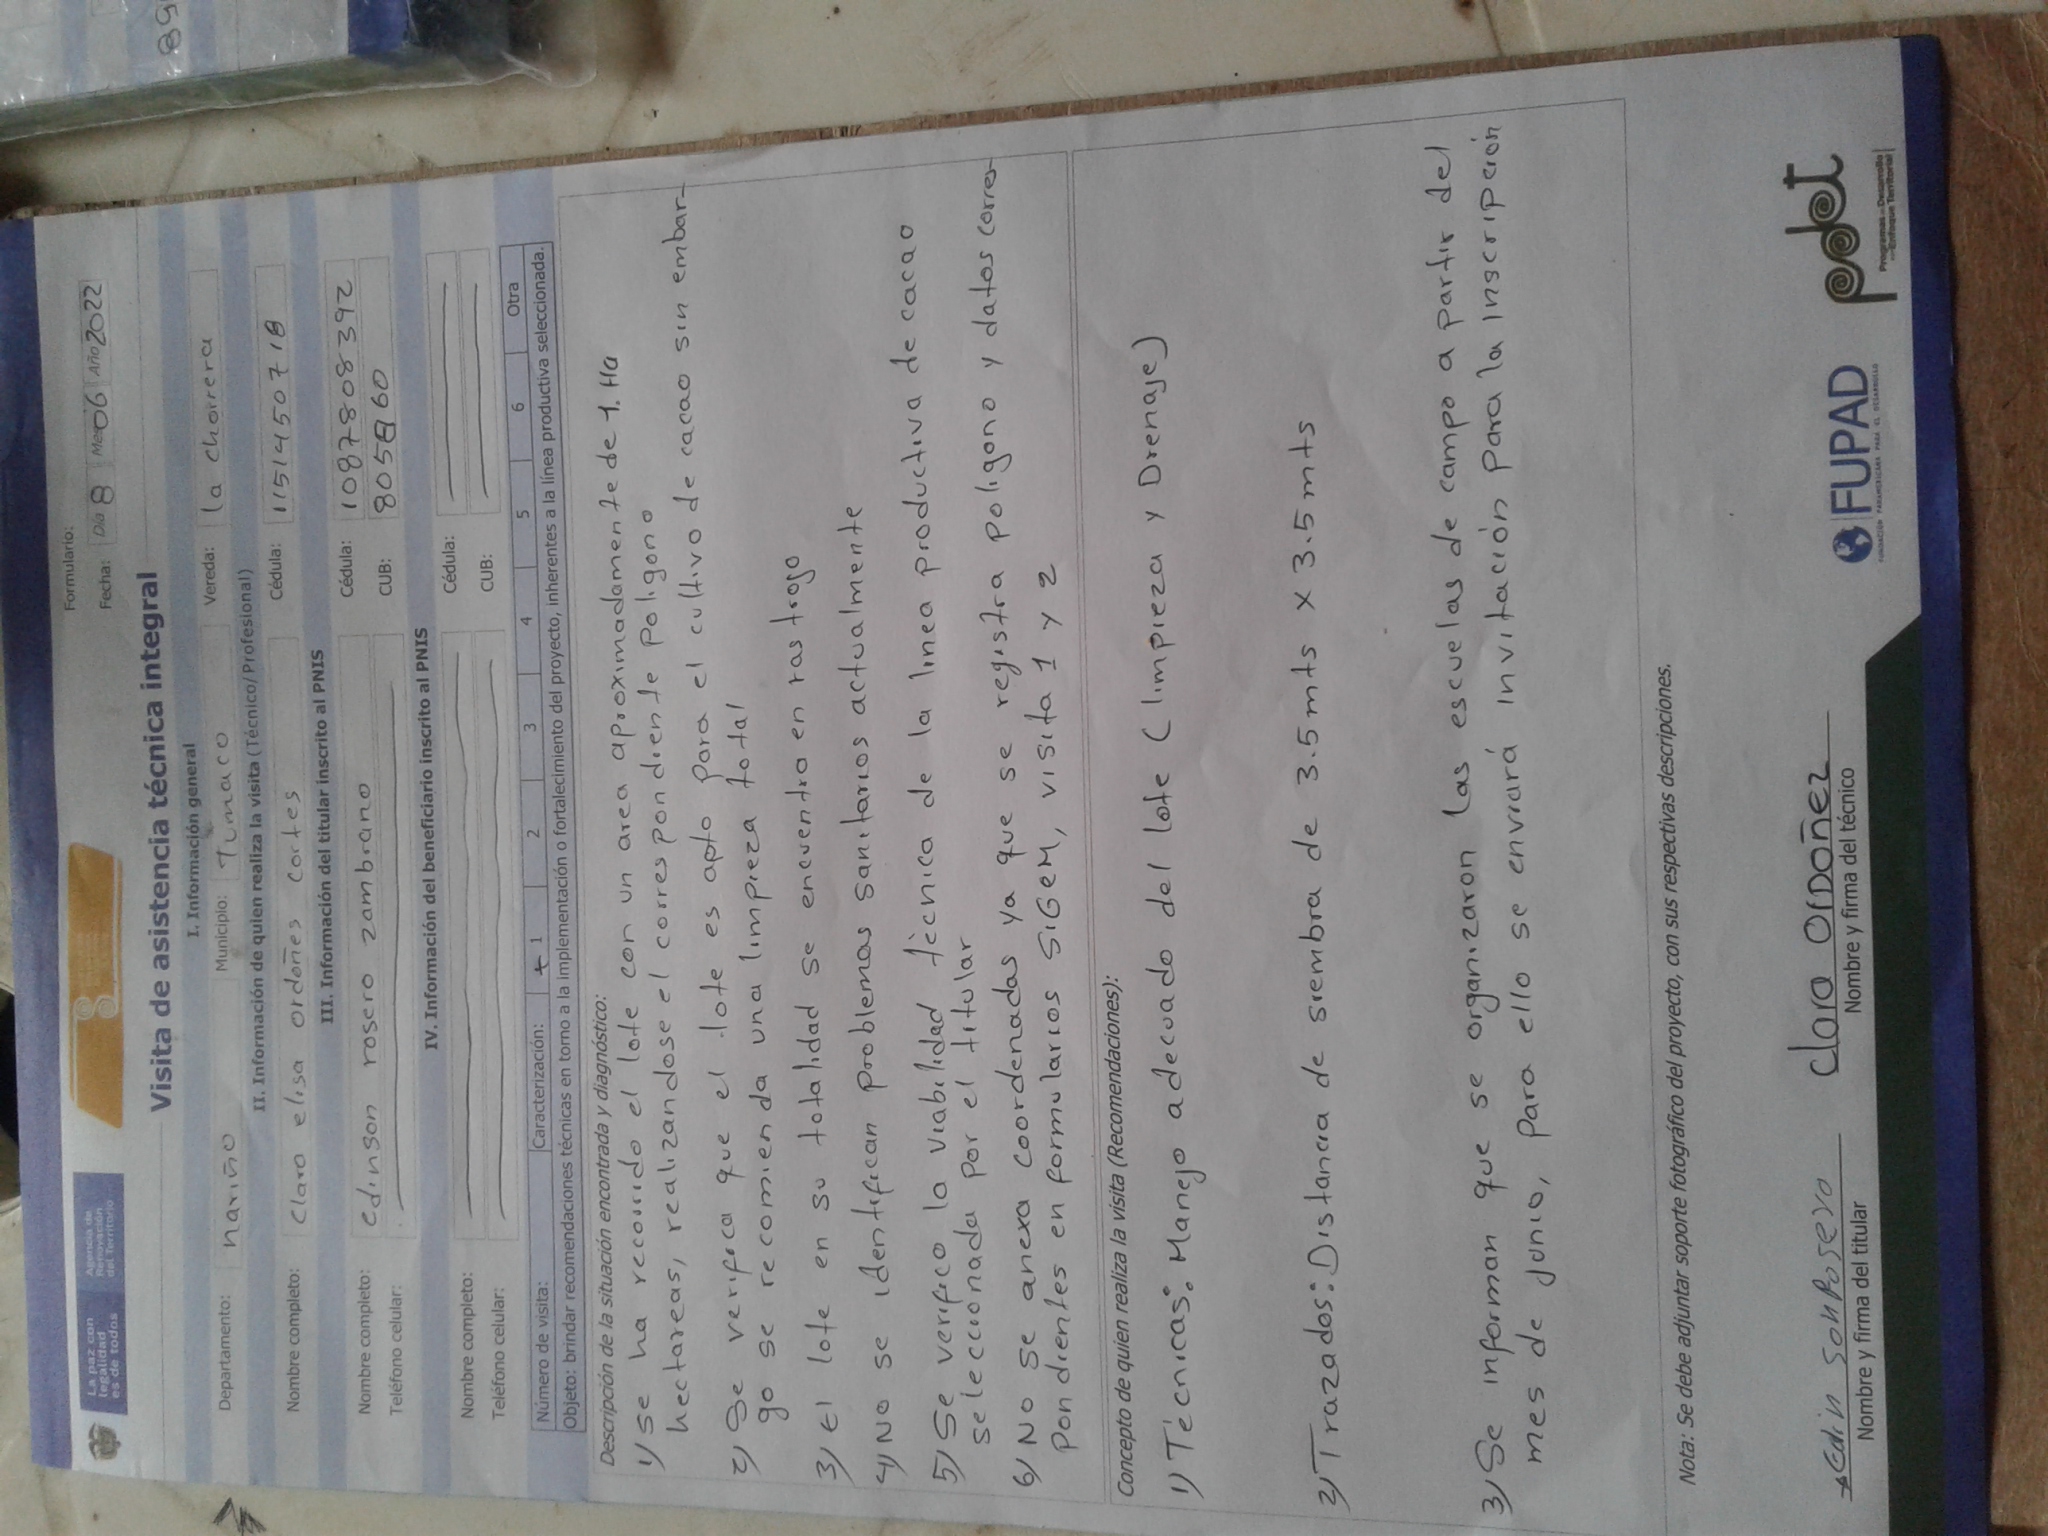 La paz con
legalidad
es de todos
Agencia de
Renovación
del Territorio
Formulario:
Fecha: Día 8 Mes 06 Año 2022
Visita de asistencia técnica integral
I. Información general
Departamento: nariño Municipio: Tumaco Vereda: la chorrera
II. Información de quien realiza la visita (Técnico/Profesional)
Nombre completo: Clara elisa ordoñes cortes Cédula: 1151450718
III. Información del titular inscrito al PNIS
Nombre completo: edinson rosero zambrano Cédula: 1087808392
Teléfono celular: CUB: 805860
IV. Información del beneficiario inscrito al PNIS
Nombre completo: Cédula:
Teléfono celular: CUB:
Número de visita: Caracterización: + 1 2 3 4 5 6 Otra
Objeto: brindar recomendaciones técnicas en torno a la implementación o fortalecimiento del proyecto, inherentes a la línea productiva seleccionada.
Descripción de la situación encontrada y diagnóstico:
1) se ha recorrido el lote con un area aproximadamente de 1. Ha
hectareas, realizandose el correspondiente poligono
2) Se verifica que el lote es apto para el cultivo de cacao sin embar-
go se recomienda una limpieza total
3) El lote en su totalidad se encuentra en rastrojo
4) No se identifican problemas sanitarios actualmente
5) Se verifico la viabilidad tècnica de la linea productiva de cacao
seleccionada por el titular
6) No se anexa coordenadas ya que se registra poligono y datos corres-
pondientes en formularios SIGEM, visita 1 y 2
Concepto de quien realiza la visita (Recomendaciones):
1) Técnicas: Manejo adecuado del lote (limpieza y Drenaje)
2) Trazados: Distancia de siembra de 3.5 mts x 3.5 mts
3) Se informan que se organizaron las escuelas de campo a partir del
mes de junio, para ello se enviará invitación para la inscripción
Nota: Se debe adjuntar soporte fotográfico del proyecto, con sus respectivas descripciones.
Clara Ordoñez
Nombre y firma del titular
Nombre y firma del técnico
FUPAD
FUNDACIÓN PANAMERICANA PARA EL DESARROLLO
pdet
Programas de Desarrollo
con Enfoque Territorial